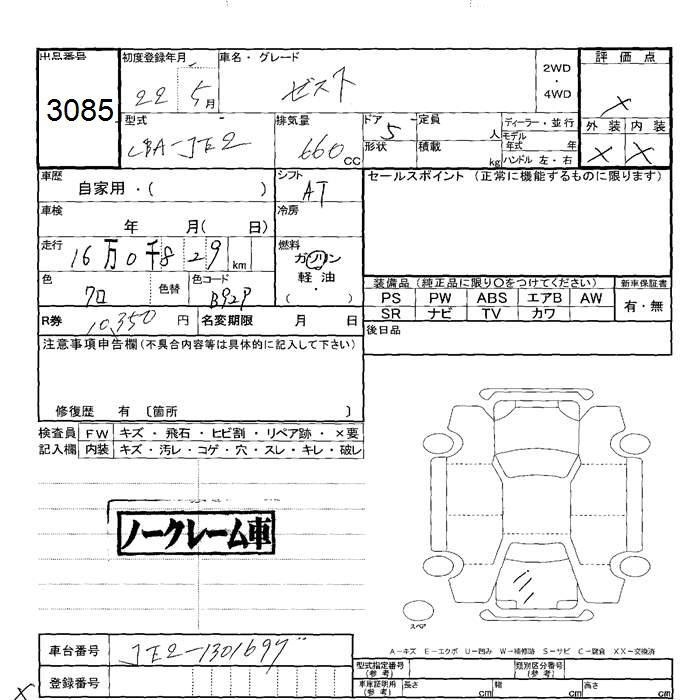 出品番号 初度登録年月 車名・グレード 2WD・4WD 評価点
3085 22 5月 ゼスト ×
型式 排気量 ドア 5 定員 人 ディーラー・並行 外装 内装
CBA-JE2 660 CC 形状 積載 kg モデル年式 年 ハンドル 左・右 × ×
車歴 自家用・( ) シフト AT セールスポイント (正常に機能するものに限ります)
車検 年 月( 日) 冷房
走行 16万0千829 km 燃料 ガソリン 軽油・( )
色 クロ 色替 色コード B92P
装備品 (純正品に限り〇をつけてください) 新車保証書
PS PW ABS エアB AW 有・無
SR ナビ TV カワ
R券 10,350 円 名変期限 月 日 後日品
注意事項申告欄 (不具合内容等は具体的に記入して下さい)
修復歴 有 〔箇所 〕
検査員 FW キズ・飛石・ヒビ割・リペア跡・×要
記入欄 内装 キズ・汚レ・コゲ・穴・スレ・キレ・破レ
ノークレーム車
スペア
A-キズ E-エクボ U-凹み W-補修跡 S-サビ C-腐食 XX-交換済
車台番号 JE2-1301697
型式指定番号(参考) 類別区分番号(参考)
登録番号 車庫証明用(参考) 長さ cm 幅 cm 高さ cm
×